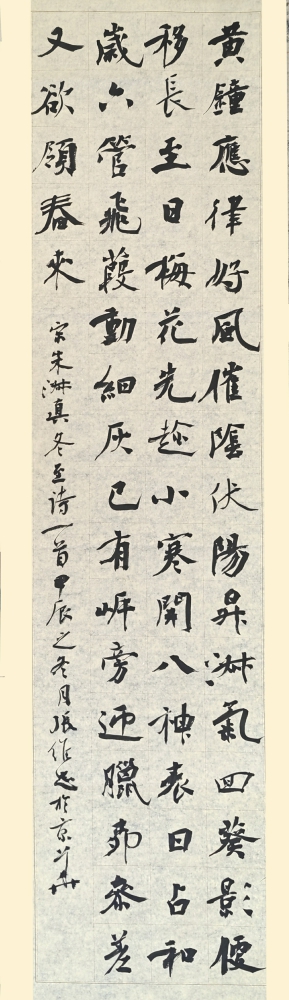 黃鐘應律好風催陰伏陽昇淑氣回葵影便
移長至日梅花先趁小寒開八神表日占和
歲六管飛葭動細灰已有岸旁迎臘柳參差
又欲領春來
宋朱淑真冬至诗一首甲辰之冬月張忠於京華